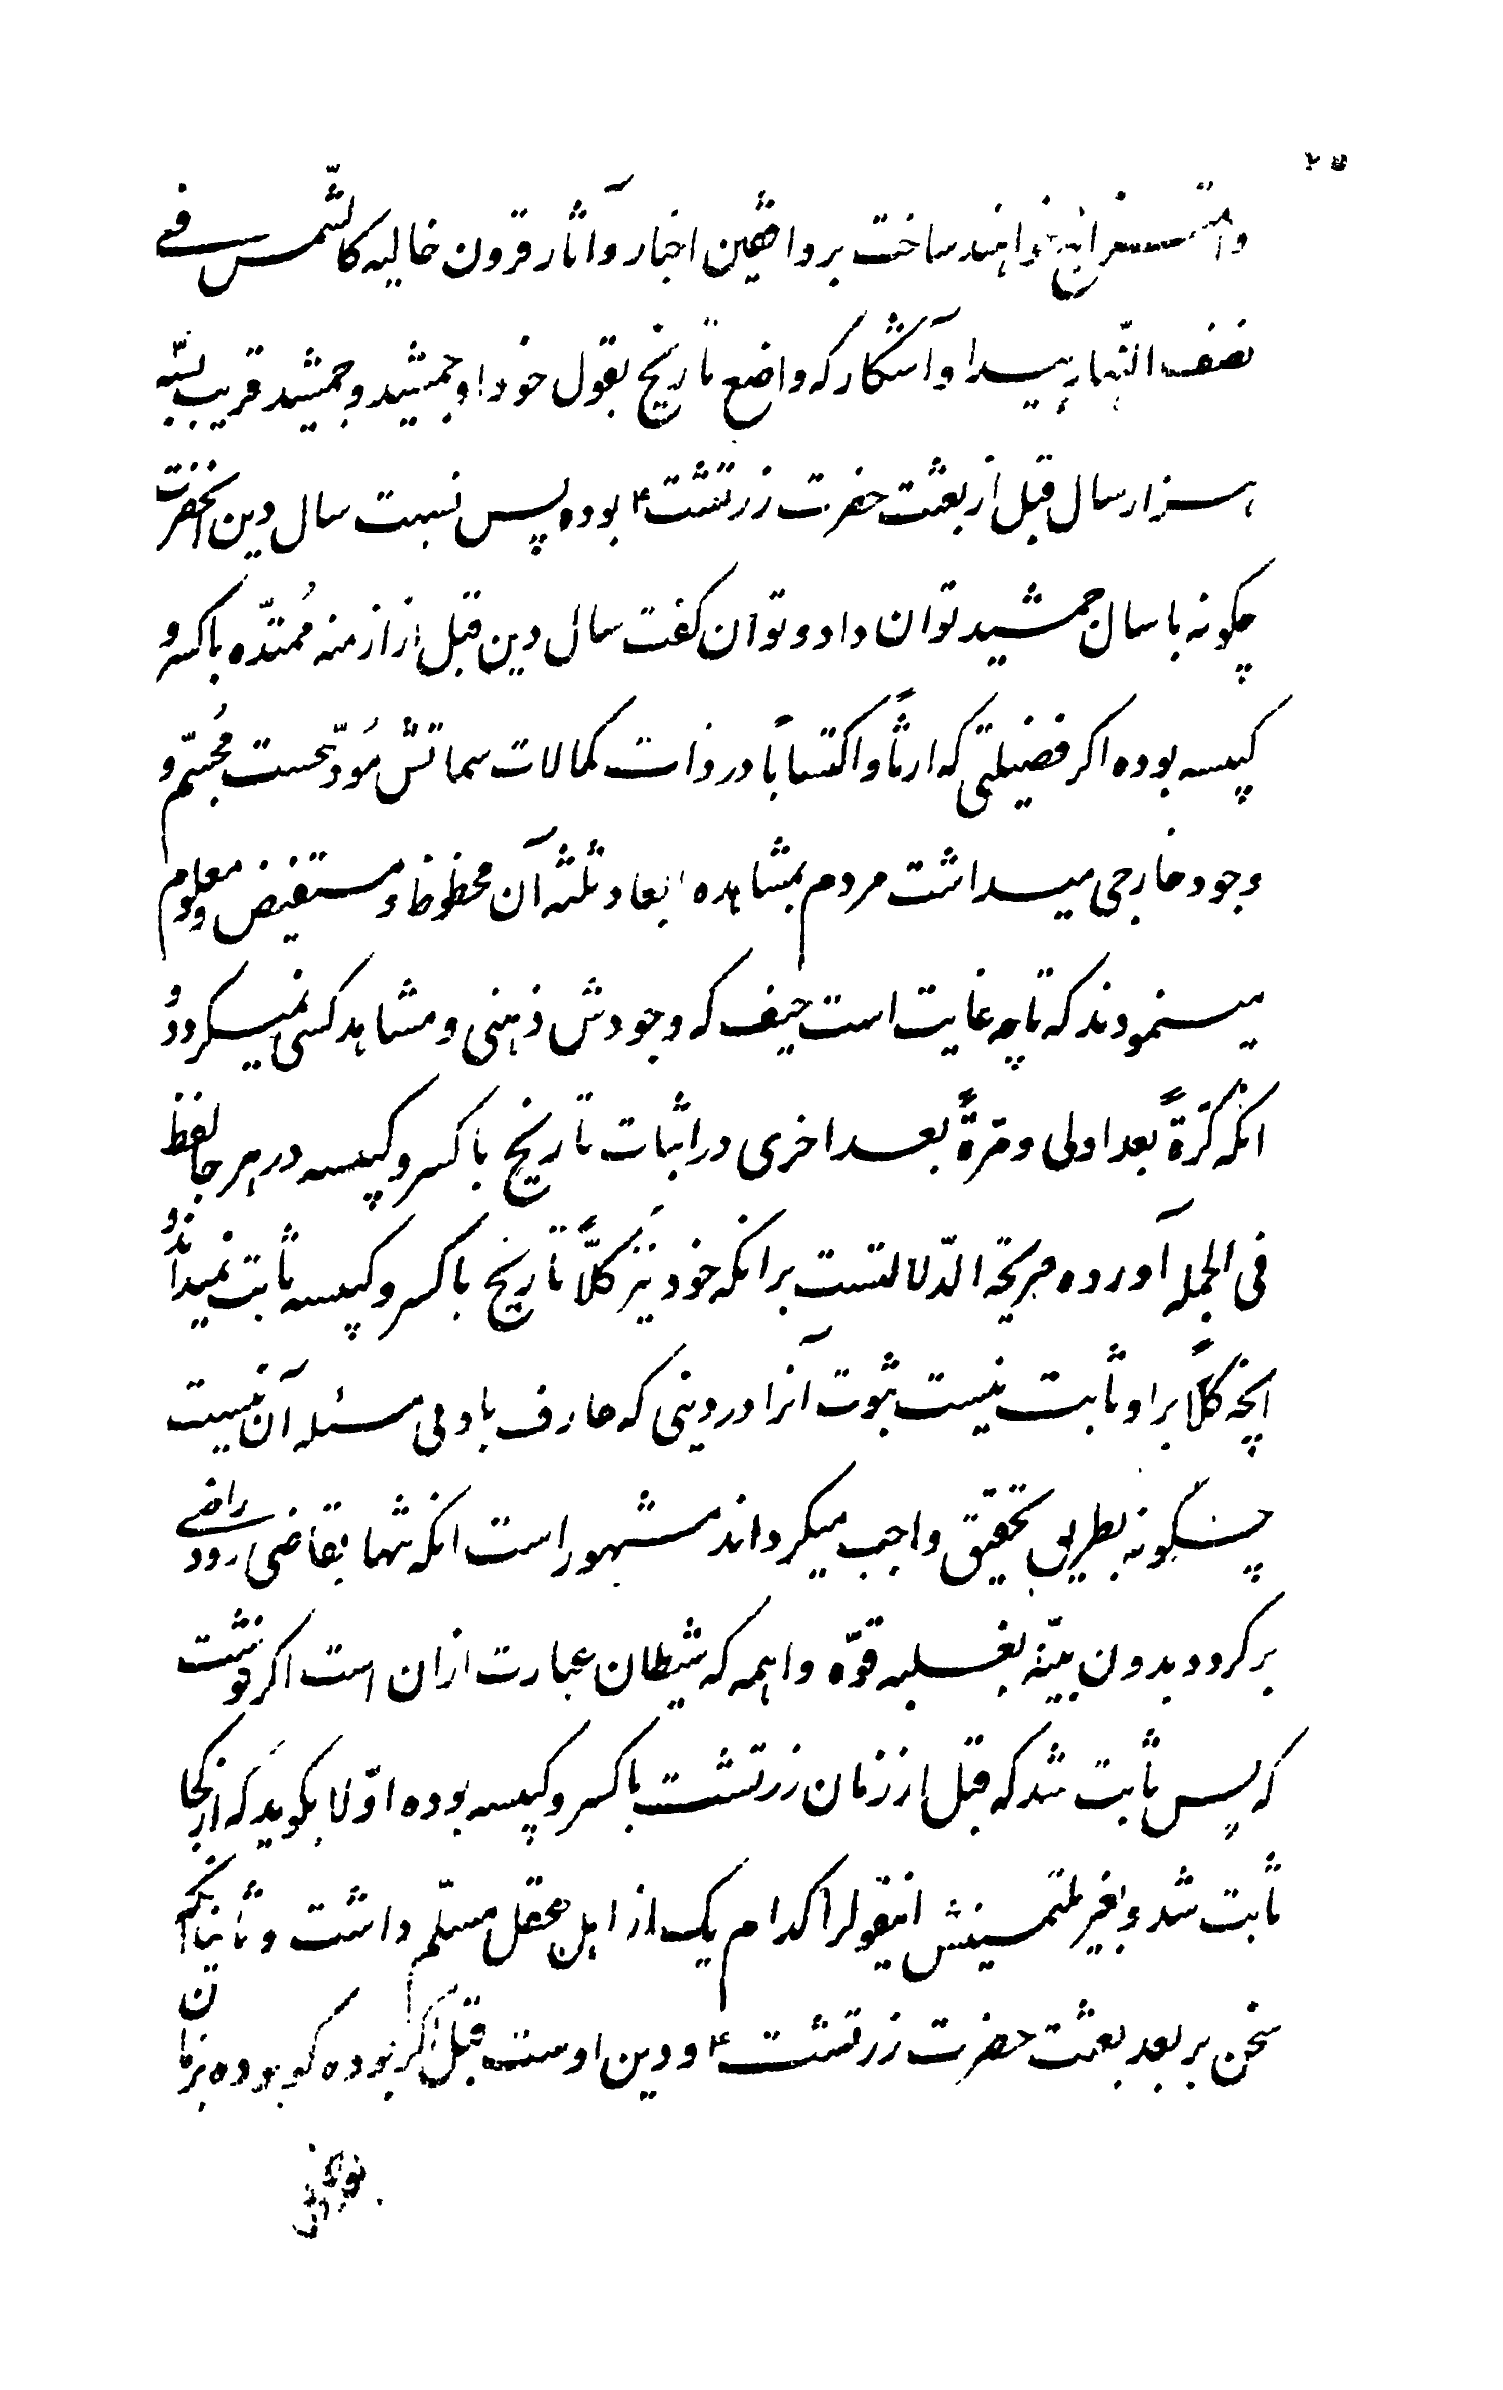 و استفراغ خواهند ساخت بر واقفین اخبار و آثار قرون خالیه کالشّمس فے
نصف النّهار پیدا و آشکار که واضع تاریخ بقول خود او جمشید و جمشید قریب بسّه
هزار سال قبل از بعثت حضرت زرتشت ۴ بوده پس نسبت سال دین آنحضرت
چکونه با سال جمشید توان داد و توان کفت سال دین قبل از ازمنه مُمتدّه باکسر و
کپیسه بوده اکر فضیلتی که ارثاً و اکتساباً در ذات کمالات سماتش مُودّعست مُجسّم و
وجود خارجی میداشت مردم بمشاهده ابعاد ثلثه آن محظوظ و مستفیض و معلوم
مینمودند که تا چه غایت است حیف که وجودش ذهنی و مشاهد کسی نمیکردد و
انکه کرّةً بعد اولی و مرّةً بعد اخری در اثبات تاریخ باکسر و کپیسه در هر جا لفظ
فی الجمله آورده صریحة الدّلالتست بر انکه خود نیز کلّاً تاریخ باکسر و کپیسه ثابت نمیداند و
انچه کلّاً بر او ثابت نیست ثبوت آنرا در دینی که عارف بادنی مسئله آن نیست
چکونه بطریق تحقیق واجب میکرداند مشهور است انکه تنها بقاضی رود راضے
بر کردد بدون بیّنه بغلبه قوّه واهمه که شیطان عبارت ازان است اکر نوشت
که پس ثابت شد که قبل از زمان زرتشت باکسر و کپیسه بوده اوّلا بکوید که از کجا
ثابت شد و بغیر ملتمسینش اینقول را کدام یک از اهل عقل مسلّم داشت و ثانیاً انکه
سخن بر بعد بعثت حضرت زرتشت ۴ و دین اوست قبل اکر بوده کو بوده بزمان